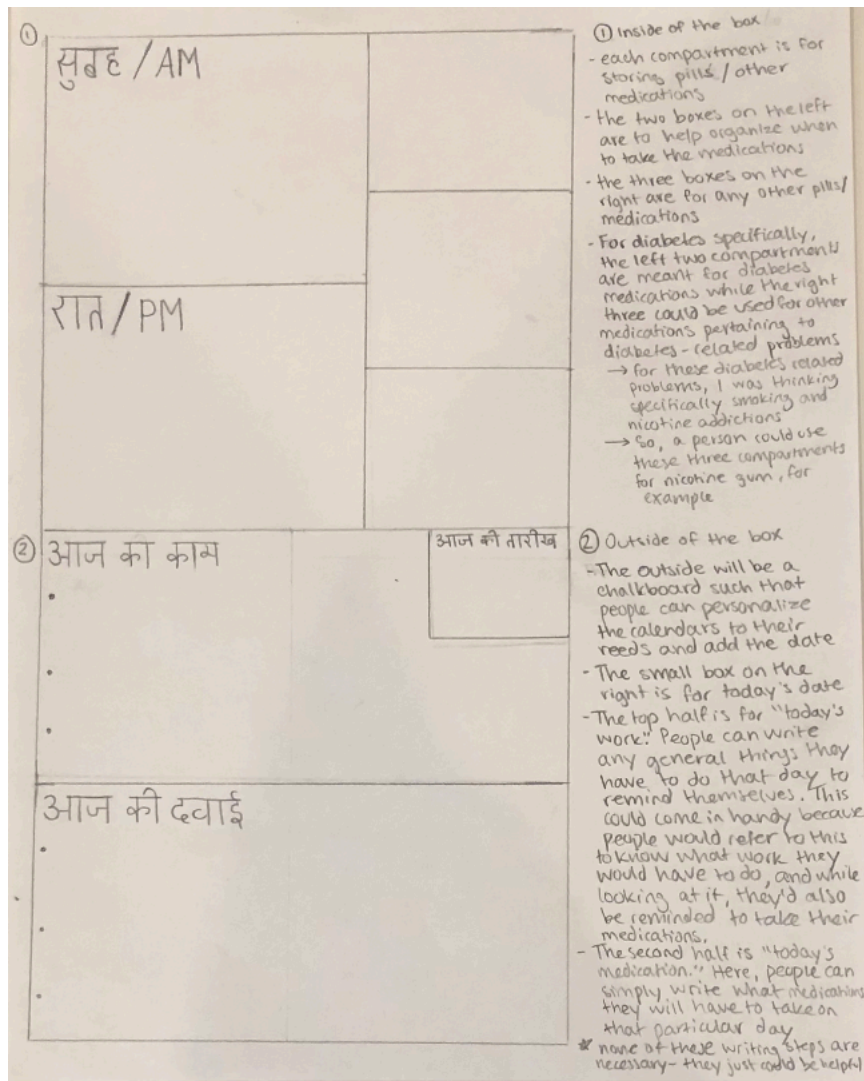 ①
सुबह / AM
रात / PM
① Inside of the box
- each compartment is for
storing pills / other
medications
- the two boxes on the left
are to help organize when
to take the medications
- the three boxes on the
right are for any other pills/
medications
- For diabetes specifically,
the left two compartments
are meant for diabetes
medications while the right
three could be used for other
medications pertaining to
diabetes-related problems
→ for these diabetes related
problems, I was thinking
specifically smoking and
nicotine addictions
→ So, a person could use
these three compartments
for nicotine gum, for
example
②
आज का काम
आज की तारीख
आज की दवाई
② Outside of the box
- The outside will be a
chalkboard such that
people can personalize
the calendars to their
needs and add the date
- The small box on the
right is for today's date
- The top half is for "today's
work." People can write
any general things they
have to do that day to
remind themselves. This
could come in handy because
people would refer to this
to know what work they
would have to do, and while
looking at it, they'd also
be reminded to take their
medications.
- The second half is "today's
medication." Here, people can
simply write what medications
they will have to take on
that particular day
* none of these writing steps are
necessary- they just could be helpful